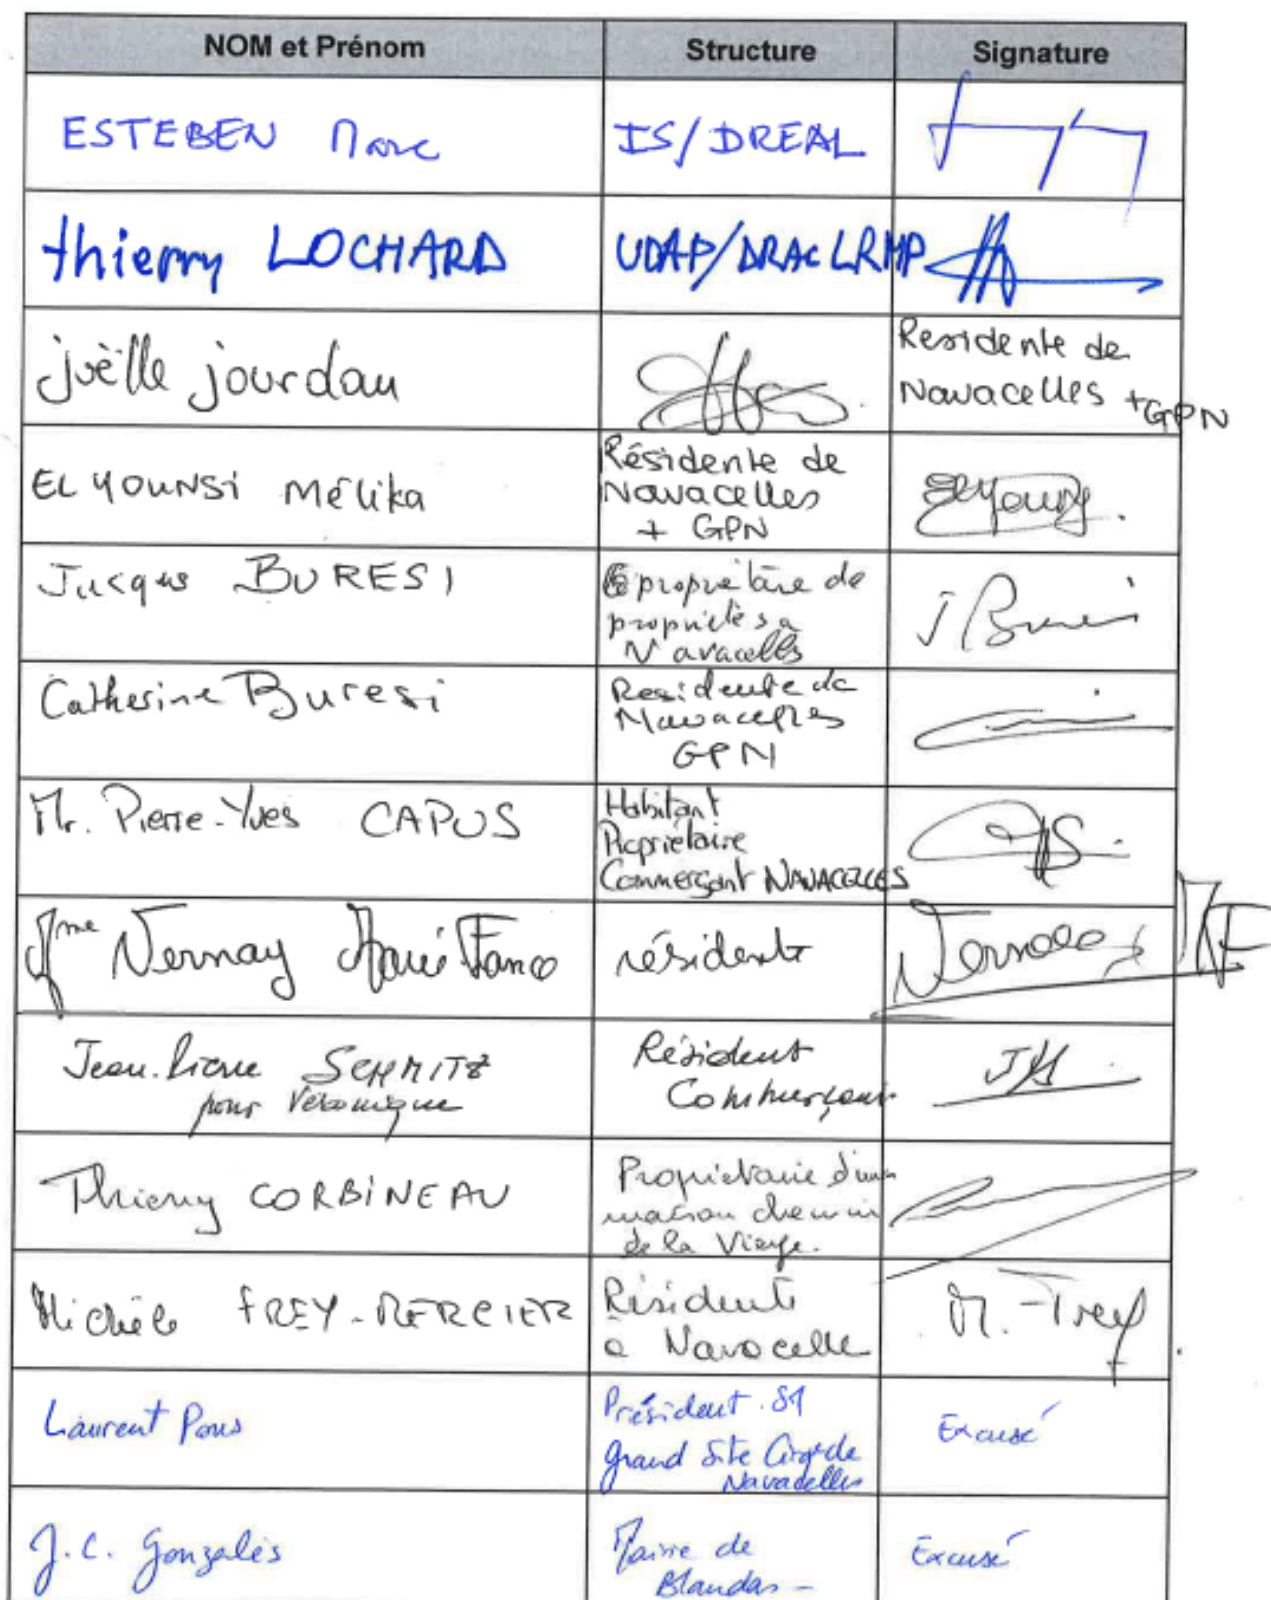 NOM et Prénom Structure Signature
ESTEBEN Marc IS/DREAL
thierry LOCHARD UDAP/DRAC LRMP
joëlle jourdan Residente de
Navacelles + GPN
EL YOUNSI Mélika Résidente de
Navacelles
+ GPN
Jacques BURESI propriétaire de
propriétés a
Navacelles
J Buresi
Catherine Buresi Residente de
Navacelles
GPN
Mr. Pierre-Yves CAPUS Habitant
Propriétaire
Commerçant NAVACELLES
Mme Vernay Marie France résidente Vernay MF
Jean-Pierre SCHMITZ Résident
pour Véronique Commerçant
Thierry CORBINEAU Propriétaire d'une
maison chemin
de la Vierge.
Michèle FREY-MERCIER Résidente
à Navacelle
M. Frey
Laurent Pons Président SM
Grand Site Cirque de
Navacelles
Excusé
J.C. Gonzalès Maire de
Blandas -
Excusé